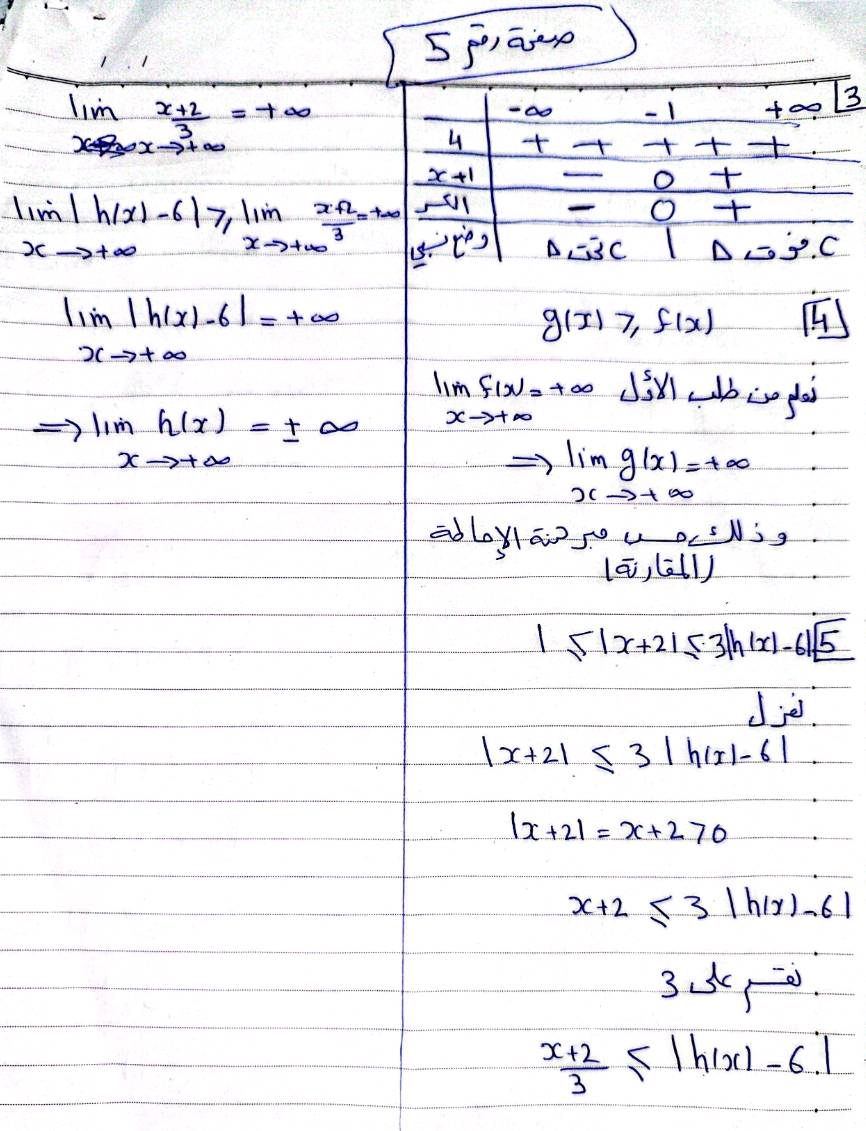 صفحة رقم 5
3
-∞ -1 +∞
4 + + + + +
x+1 − 0 +
الكسر − 0 +
وضع نسبي C تحت Δ | C فوق Δ
4 g(x) ⩾ f(x)
نعلم من طلب الأول lim f(x) = +∞
x→+∞
⇒ lim g(x) = +∞
x→+∞
وذلك حسب مبرهنة الإحاطة
(المقارنة)
5 1 ⩽ |x+2| ⩽ 3|h(x)-6|
نعزل
|x+2| ⩽ 3 |h(x)-6|
|x+2| = x+2 > 0
x+2 ⩽ 3 |h(x)-6|
نقسم على 3
x+2/3 ⩽ |h(x)-6|
lim x+2/3 = +∞
x→+∞
lim |h(x)-6| ⩾ lim x+2/3 = +∞
x→+∞ x→+∞
lim |h(x)-6| = +∞
x→+∞
⇒ lim h(x) = ± ∞
x→+∞